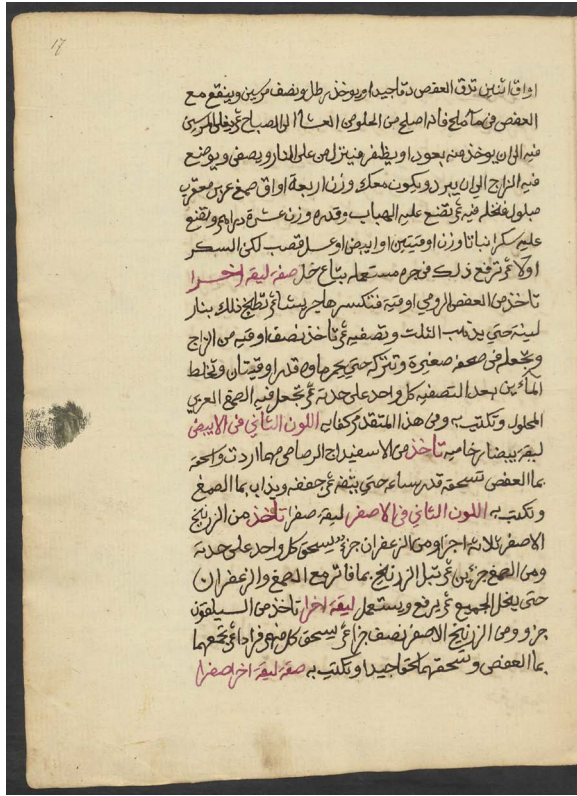 17
اواق اثنين تدق العفص دقا جيدا ويوخذ رطل ونصف مرسين وينقع مع
العفص في ماء ملح فانه اصلح من الحلو من العشا الى الصباح ثم يغلى المرسين
فيه الى ان يوخذ منه بعود او يظفر فينزل من على النار ويصفى ويوضع
فيه الزاج الى ان يبرد ويكون معك وزن اربعة اواق صمغ عربي معقرب
مبلول فتحله فيه ثم تضع عليه الهباب وقدره وزن عشرة دراهم وتضع
عليه سكرا نباتا وزن اوقيتين او ابيض او عسل قصب لكن السكر
اولا ثم ترفع ذلك في جره مستعمله بتاع خل صفه ليقه اخرا
تاخذ من العفص الرومي اوقيه فتكسرها جريشا ثم تطبخ ذلك بنار
لينه حتي يذهب الثلث وتصفيه ثم تاخذ نصف اوقيه من الزاج
وتجعله في صحفه صغيرة وتتركه حتي يحمر ماوه قدر اوقيتان وتخلط
المائين بعد التصفيه كل واحد على حدته ثم تجعل فيه الصمغ العربي
المحلول وتكتب به وفي هذا المتقدم كفايه اللون الثاني في الابيض
ليقه بيضا رخاميه تأخذ من الاسفيداج الرصاصي مهما اردت واسحقه
بما العفص تسحقه قدر ساعه حتي ثم جففه ويذاب بما الصمغ
وتكتب به اللون الثاني في الاصفر ليقه صفرا تأخذ من الزرنيخ
الاصفر ثلاثه اجزا ومن الزعفران جزء يسحق كل واحد على حدته
ومن الصمغ جزئين ثم تبل الزرنيخ بما فاتر مع الصمغ والزعفران
حتى ينحل الجميع ثم يرفع ويستعمل ليقه اخرا تاخذ من السيلقون
جزو ومن الزرنيخ الاصفر نصف جزا ثم يسحق كل منهم فرادا ثم تجمعهما
بما العفص وتسحقهما سحقا جيدا وتكتب به صفه ليقه اخرا صفرا